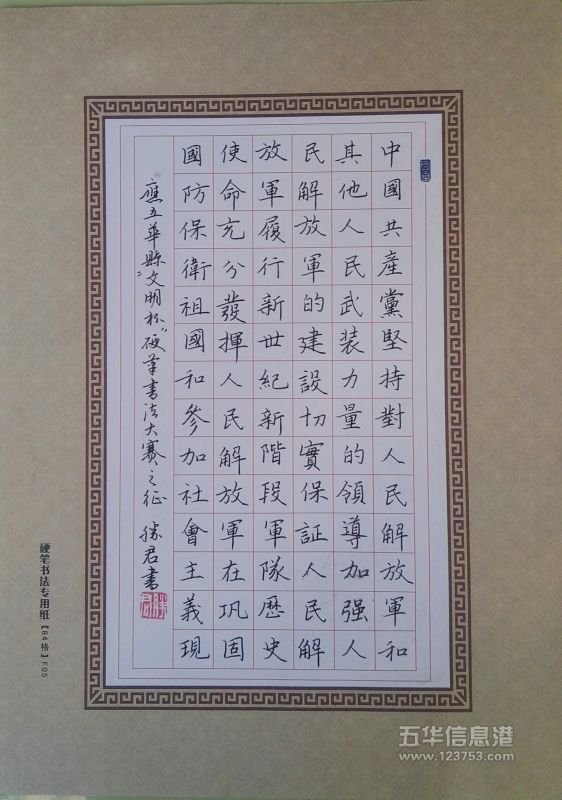 中國共產黨堅持對人民解放軍和
其他人民武裝力量的領導加强人
民解放軍的建設切實保証人民解
放軍履行新世紀新階段軍隊歷史
使命充分發揮人民解放軍在巩固
國防保衛祖國和參加社會主義現
應五華縣“文明杯”硬筆書法大赛之征 勝君書
硬笔书法专用纸【84格】F05
五华信息港
www.123753.com